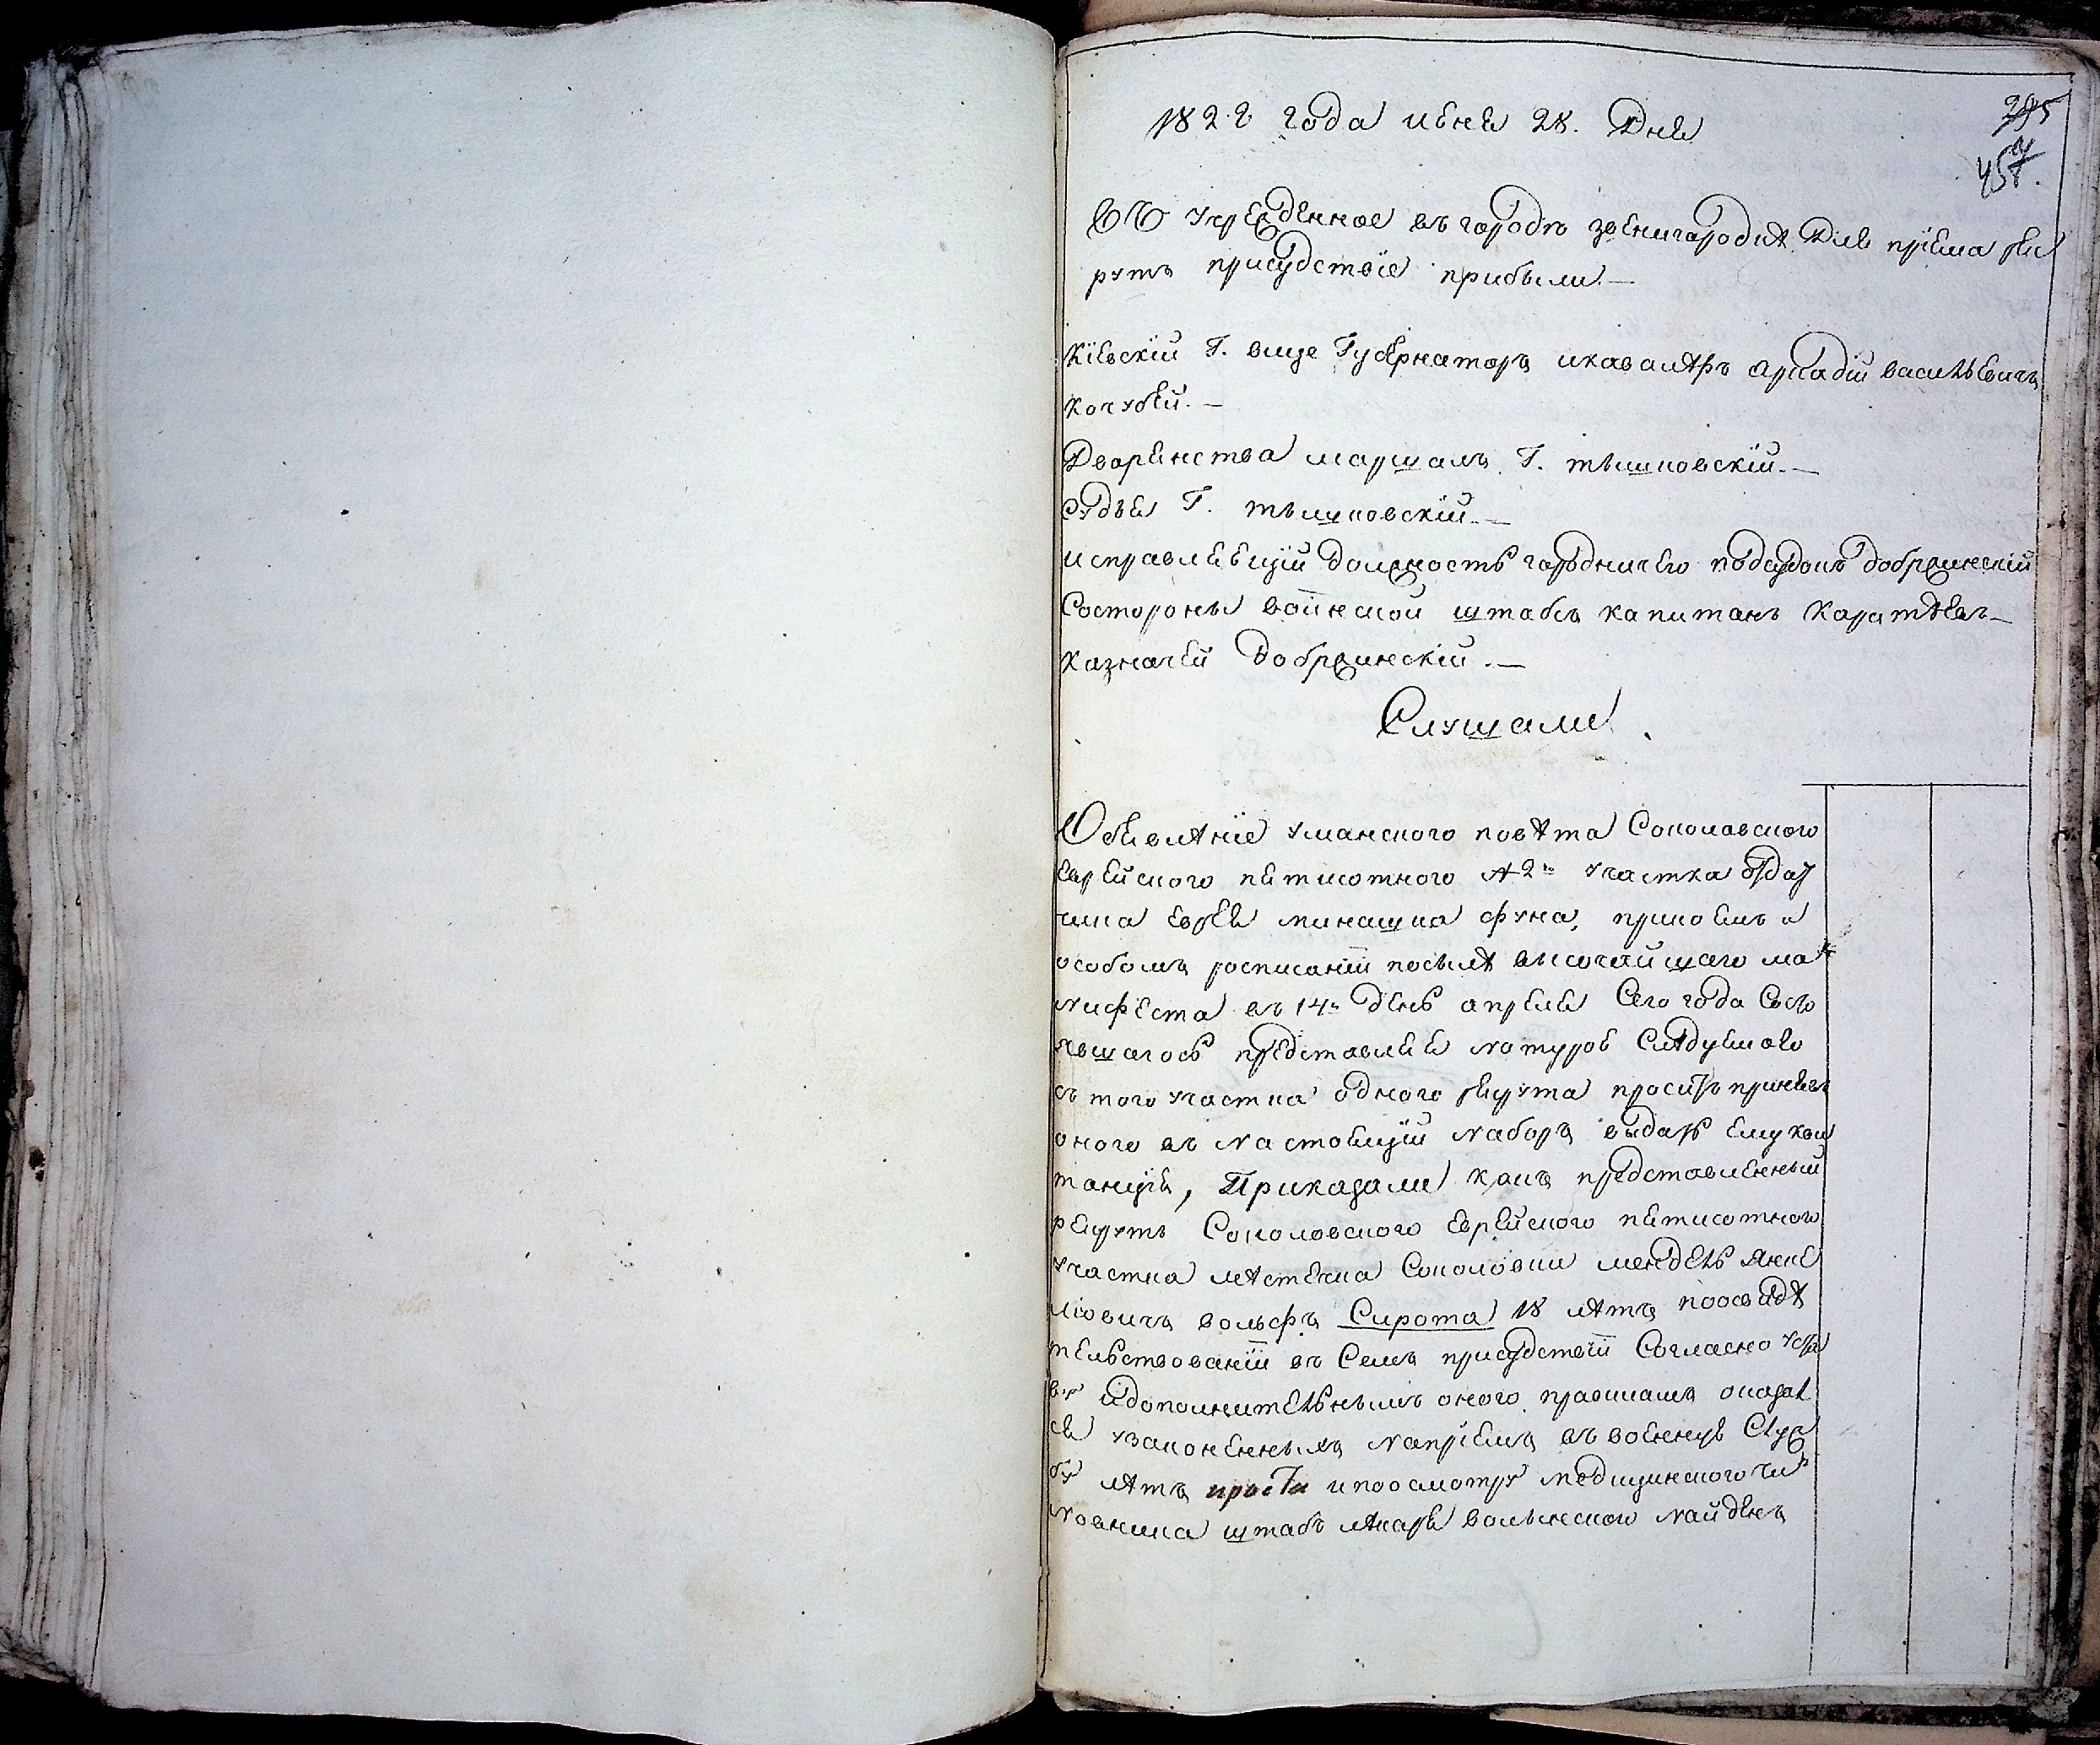 1828 года июня 28. Дня
295
457.
Въ учрежденное въ городѣ звенигородкѣ Для прїема рек
рутъ присудствїе прибыли. —
Кїевскїй Г. вице Губернаторъ икавалѣръ Аркадїй васильевичъ
кочубей. —
Дворянства маршалъ Г. тышковскїй. —
Судья Г. тышковскїй. —
исправляющїй Должность городничего подсудокъ добржинскїй
Состороны воинской штабсъ капитанъ каратѣевъ —
казначей добржинскїй. —
Слушали
Объявлѣнїе уманского повѣта Соколовского
еврейского пятисотного № 2го участка отдат
чика еврея минашка фука, прикоемъ и
особомъ росписанїи посилѣ высочайшаго ма
нифеста въ 14й День апреля Сего года Состо
явшагось представляя натурою Слѣдуемого
съ того участка одного рекрута проситъ принявъ
оного въ настоящїй наборъ выдать ему кви
танцїю, Приказали какъ представленный
рекрутъ Соколовского еврейского пятисотного
участка мѣстечка Соколовки мендель янке
лїовичъ вольфъ Сирота 18 лѣтъ поосвидѣ
тельствованїи въ Семъ присудствїи Согласно уста
ву идополнительнымъ оного правиламъ оказал
ся узаконенныхъ напрїемъ въ военную Служ
бу лѣтъ проста ипоосмотру медицинского чи
новника штабъ лѣкаря волынского найденъ